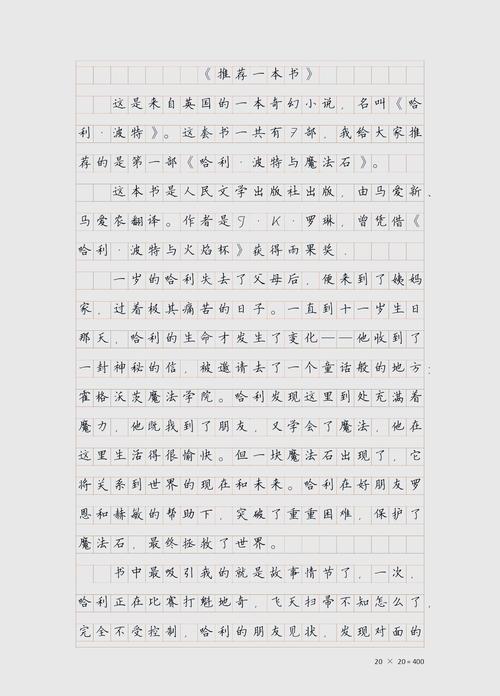 《推荐一本书》
这是来自英国的一本奇幻小说，名叫《哈
利·波特》。这套书一共有7部，我给大家推
荐的是第一部《哈利·波特与魔法石》。
这本书是人民文学出版社出版，由马爱新、
马爱农翻译。作者是J·K·罗琳，曾凭借《
哈利·波特与火焰杯》获得雨果奖．
一岁的哈利失去了父母后，便来到了姨妈
家，过着极其痛苦的日子。一直到十一岁生日
那天，哈利的生命才发生了变化——他收到了
一封神秘的信，被邀请去了一个童话般的地方：
霍格沃茨魔法学院。哈利发现这里到处充满着
魔力，他既找到了朋友，又学会了魔法，他在
这里生活得很愉快。但一块魔法石出现了，它
将关系到世界的现在和未来。哈利在好朋友罗
恩和赫敏的帮助下，突破了重重困难，保护了
魔法石，最终拯救了世界。
书中最吸引我的就是故事情节了，一次，
哈利正在比赛打魁地奇，飞天扫帚不知怎么了，
完全不受控制，哈利的朋友见状，发现对面的
20 × 20 = 400